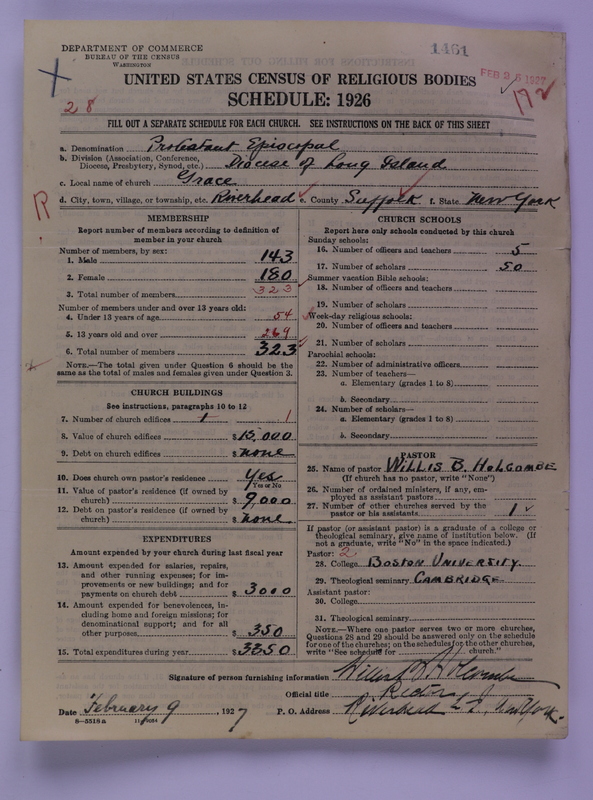 DEPARTMENT OF COMMERCE
BUREAU OF THE CENSUS
WASHINGTON
1461
FEB 26 1927
UNITED STATES CENSUS OF RELIGIOUS BODIES
28
SCHEDULE: 1926
172
FILL OUT A SEPARATE SCHEDULE FOR EACH CHURCH. SEE INSTRUCTIONS ON THE BACK OF THIS SHEET
a. Denomination Protestant Episcopal
b. Division (Association, Conference, Diocese, Presbytery, Synod, etc.) Diocese of Long Island
c. Local name of church Grace
d. City, town, village, or township, etc. Riverhead e. County Suffolk f. State New York
R
MEMBERSHIP
Report number of members according to definition of
member in your church
Number of members, by sex:
1. Male 143
2. Female 180
3. Total number of members 323
Number of members under and over 13 years old:
4. Under 13 years of age 54
5. 13 years old and over 269
6. Total number of members 323
NOTE.—The total given under Question 6 should be the
same as the total of males and females given under Question 3.
CHURCH BUILDINGS
See instructions, paragraphs 10 to 12
7. Number of church edifices 1 1
8. Value of church edifices $15,000
9. Debt on church edifices $none
10. Does church own pastor's residence? Yes
Yes or No
11. Value of pastor's residence (if owned by
church) $9,000
12. Debt on pastor's residence (if owned by
church) $none
EXPENDITURES
Amount expended by your church during last fiscal year
13. Amount expended for salaries, repairs,
and other running expenses; for im-
provements or new buildings; and for
payments on church debt $3000
14. Amount expended for benevolences, in-
cluding home and foreign missions; for
denominational support; and for all
other purposes $350
15. Total expenditures during year $3350
CHURCH SCHOOLS
Report here only schools conducted by this church
Sunday schools:
16. Number of officers and teachers 5
17. Number of scholars 50
Summer vacation Bible schools:
18. Number of officers and teachers
19. Number of scholars
Week-day religious schools:
20. Number of officers and teachers
21. Number of scholars
Parochial schools:
22. Number of administrative officers
23. Number of teachers—
a. Elementary (grades 1 to 8)
b. Secondary
24. Number of scholars—
a. Elementary (grades 1 to 8)
b. Secondary
PASTOR
25. Name of pastor WILLIS B. HOLCOMBE
(If church has no pastor, write "None")
26. Number of ordained ministers, if any, em-
ployed as assistant pastors
27. Number of other churches served by the
pastor or his assistants 1
If pastor (or assistant pastor) is a graduate of a college or
theological seminary, give name of institution below. (If
not a graduate, write "No" in the space indicated.)
Pastor: 2
28. College BOSTON UNIVERSITY.
29. Theological seminary CAMBRIDGE
Assistant pastor:
30. College
31. Theological seminary
NOTE.—Where one pastor serves two or more churches,
Questions 28 and 29 should be answered only on the schedule
for one of the churches; on the schedules for the other churches,
write "See schedule for church."
Signature of person furnishing information Willis B Holcombe
Official title Rector
Date February 9, 1927 P. O. Address Riverhead L I, New York.
8—5518a